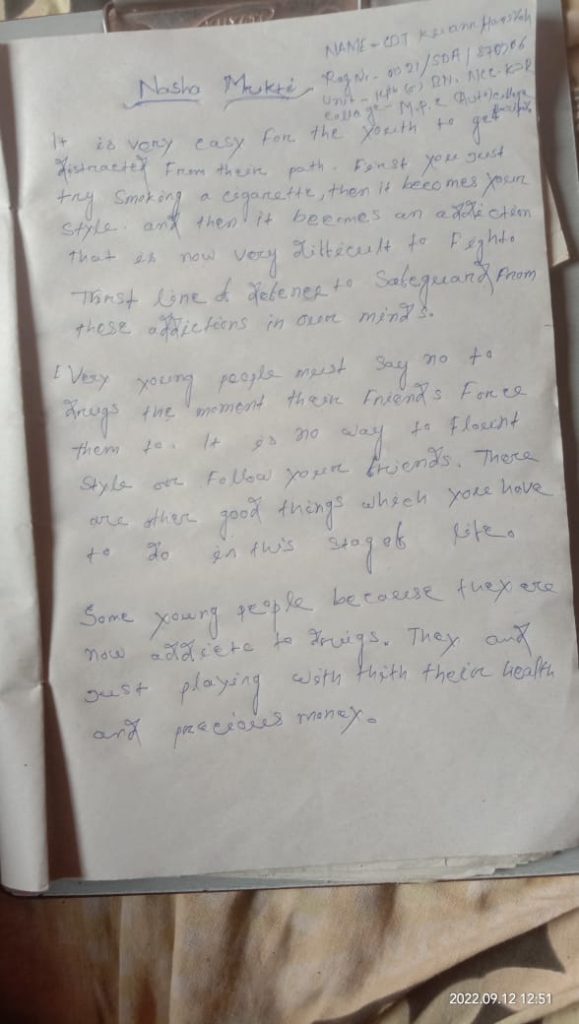 Nasho Mukti
NAME - CDT
Reg Nr. - OD21/SDA/870706
Unit - BN. NCC-KJR
College - M.P.C Auto College
It is very easy for the youth to get
distracted From their path. First you just
try smoking a cigarette, then it becomes your
style. and then it becomes an addiction
that is now very difficult to Fight.
Thirst line of defence to Safeguard From
these addictions in our minds.
Very young people must say no to
drugs the moment their Friends Force
them to. It is no way to Flount
style or Follow your friends. There
are other good things which you have
to do in this stag of life.
Some young people because they are
now addicte to drugs. They and
just playing with thith their health
and pracious money.
2022.09.12 12:51